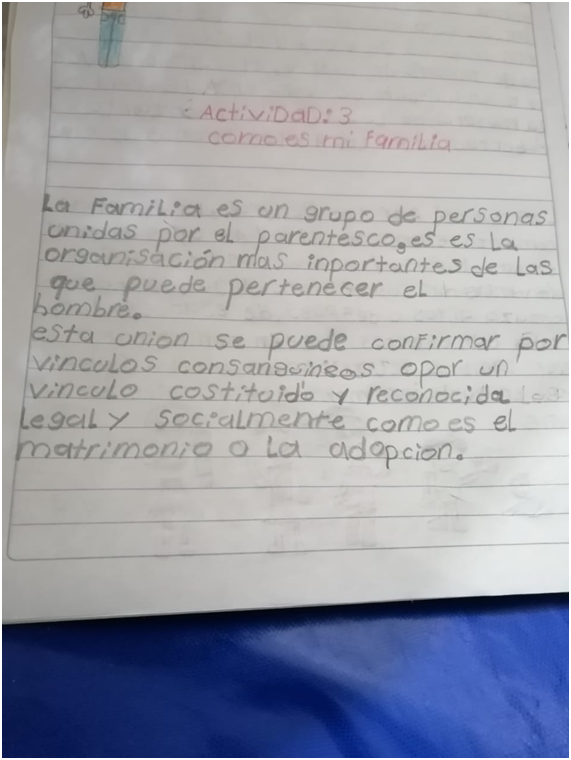 ActiviDaD: 3
como es mi Familia
La Familia es un grupo de personas
unidas por el parentesco, es es La
organisación mas inportantes de Las
que puede pertenecer el
hombre.
esta union se puede confirmar por
vinculos consanguineos opor un
vinculo costituido y reconocida
Legal y socialmente como es el
matrimonio o La adopcion.